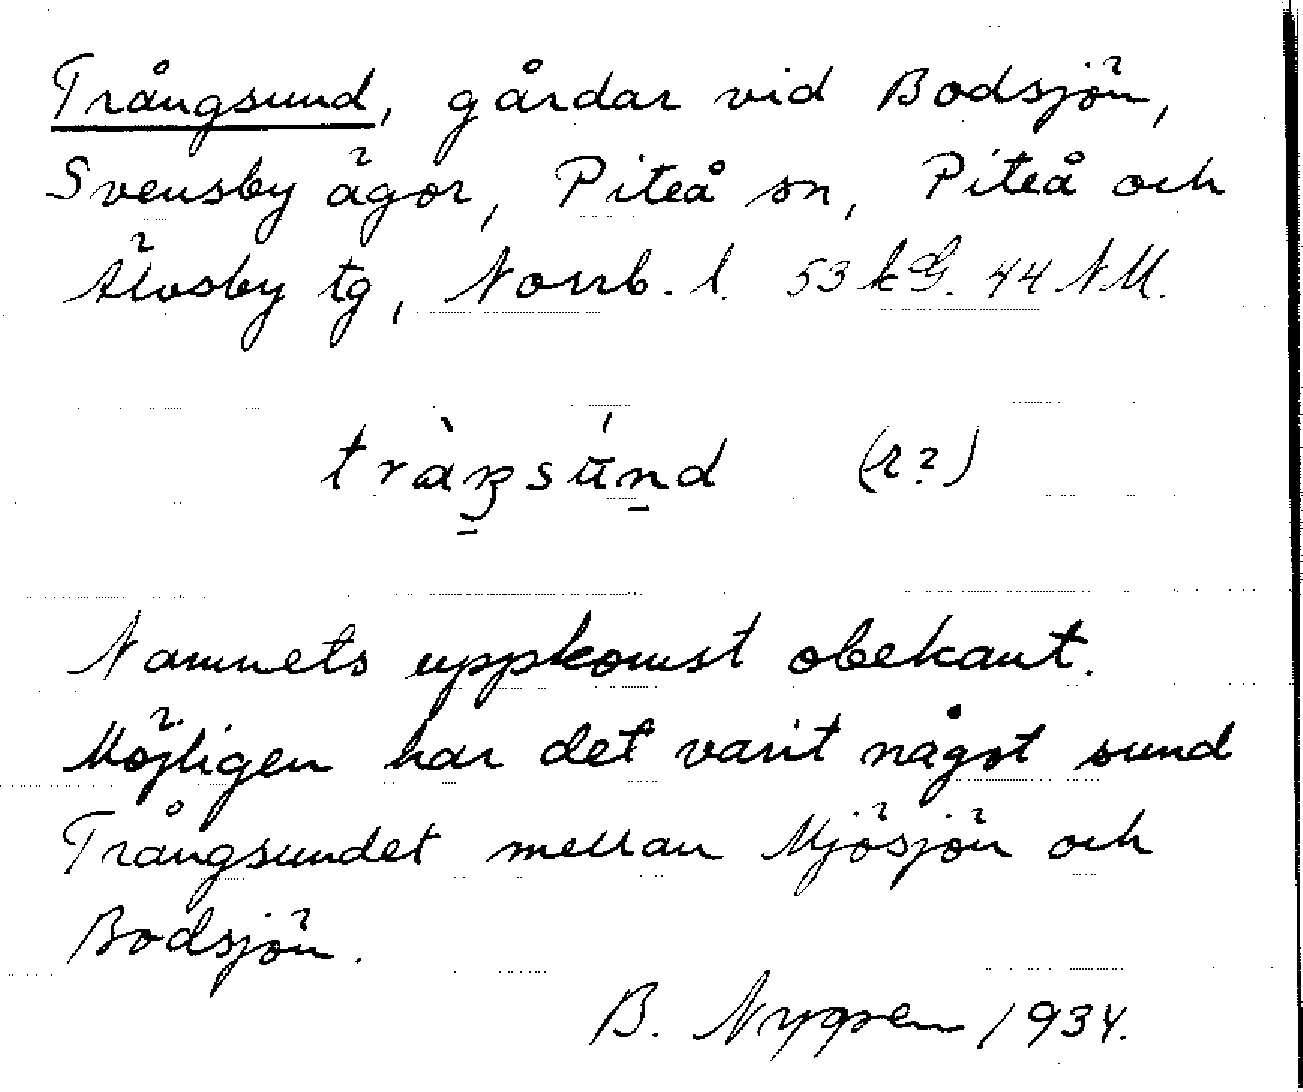 Trångsund, gårdar vid Bodsjön,
Svensby ägor, Piteå sn, Piteå och
Älvsby tg, Norrb. l. 53 kG. 44 NM.
(r?)
Namnets uppkomst obekant.
Möjligen har det varit något sund
Trångsundet mellan Mjösjön och
Bodsjön.
B. Nygren 1934.